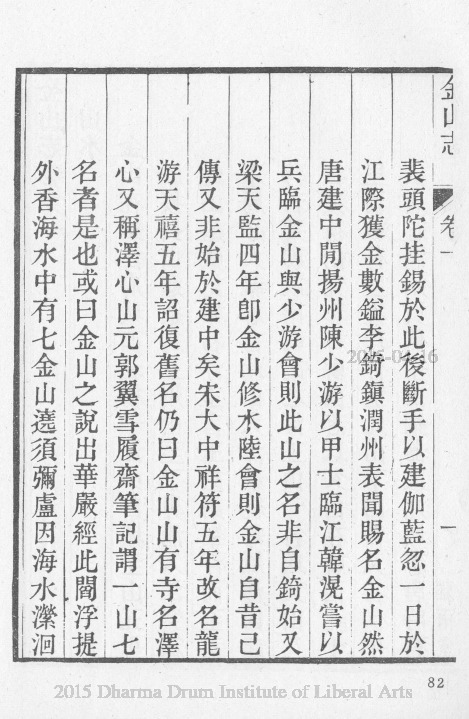 金山志 卷一 一
裴頭陀挂錫於此後斷手以建伽藍忽一日於
江際獲金數鎰李錡鎮潤州表聞賜名金山然
唐建中閒揚州陳少游以甲士臨江韓滉嘗以
兵臨金山與少游會則此山之名非自錡始又
梁天監四年卽金山修水陸會則金山自昔已
傳又非始於建中矣宋大中祥符五年改名龍
游天禧五年詔復舊名仍曰金山山有寺名澤
心又稱澤心山元郭翼雪履齋筆記謂一山七
名者是也或曰金山之說出華嚴經此閻浮提
外香海水中有七金山遶須彌盧因海水瀠洄
82
2015 Dharma Drum Institute of Liberal Arts